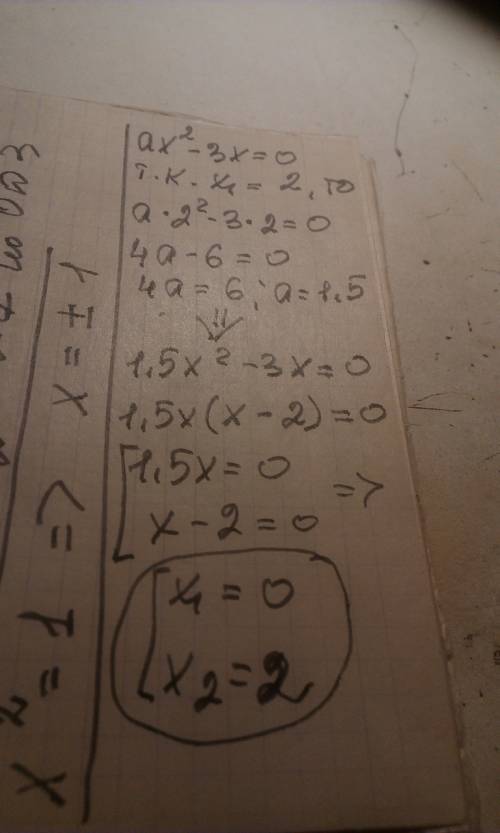 ax² - 3x = 0
т.к. x₁ = 2, то
a·2² - 3·2 = 0
4a - 6 = 0
4a = 6; a = 1.5
⇓
1.5x² - 3x = 0
1.5x(x - 2) = 0
[1.5x = 0
x - 2 = 0 =>
[x₁ = 0
x₂ = 2
x² = 1 => x = ± 1